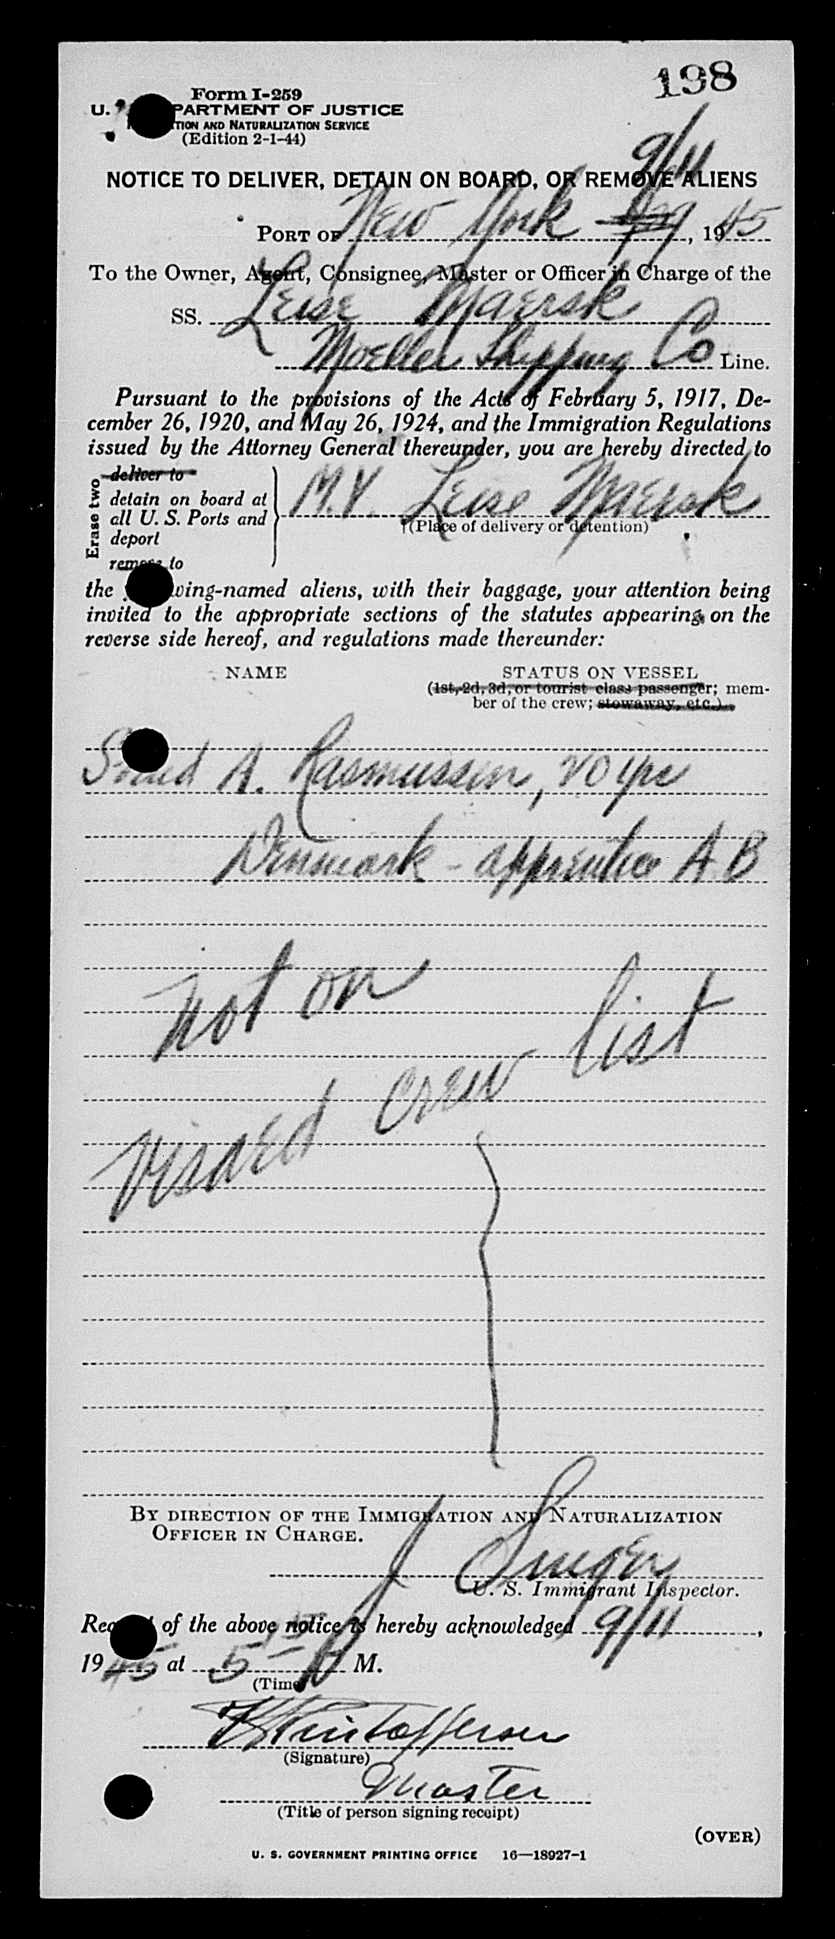 198
Form I-259
U. PARTMENT OF JUSTICE
TION AND NATURALIZATION SERVICE
(Edition 2-1-44)
9/11
NOTICE TO DELIVER, DETAIN ON BOARD, OR REMOVE ALIENS
PORT OF New York, 1945
To the Owner, Agent, Consignee, Master or Officer in Charge of the
SS. Leise Maersk
Moeller Shipping Co Line.
Pursuant to the provisions of the Acts of February 5, 1917, De-
cember 26, 1920, and May 26, 1924, and the Immigration Regulations
issued by the Attorney General thereunder, you are hereby directed to
Erase two
deliver to
detain on board at
all U. S. Ports and
deport
remove to
M.V. Leise Maersk
(Place of delivery or detention)
the wing-named aliens, with their baggage, your attention being
invited to the appropriate sections of the statutes appearing on the
reverse side hereof, and regulations made thereunder:
NAME STATUS ON VESSEL
(1st, 2d, 3d, or tourist class passenger; mem-
ber of the crew; stowaway, etc.)
A. Rasmussen, 20 yrs
Denmark - apprentice A B
not on
visaed crew list
BY DIRECTION OF THE IMMIGRATION AND NATURALIZATION
OFFICER IN CHARGE.
J Singer
U. S. Immigrant Inspector.
Rec of the above notice is hereby acknowledged 9/11,
1945 at 5 15 P M.
(Time)
(Signature)
Master
(Title of person signing receipt)
(OVER)
U. S. GOVERNMENT PRINTING OFFICE 16—18927-1